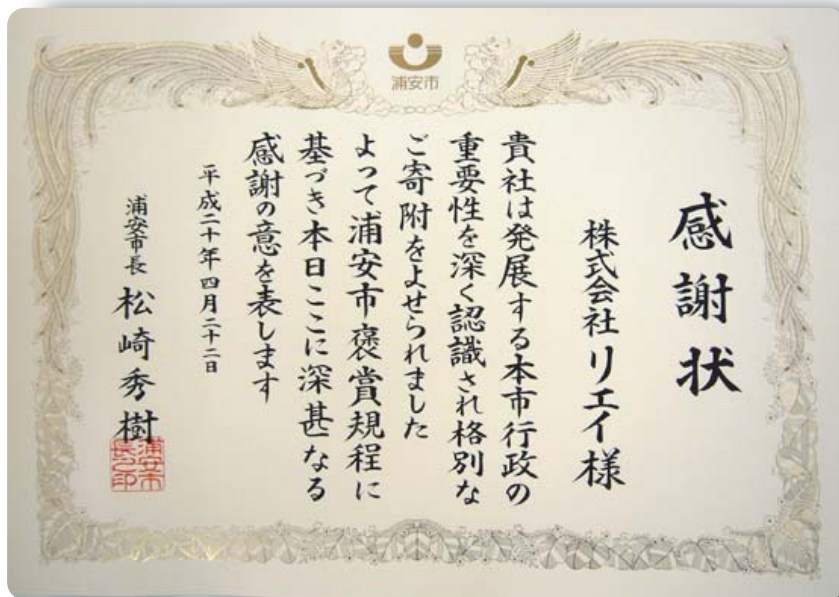 浦安市
感謝状
株式会社リエイ様
貴社は発展する本市行政の
重要性を深く認識され格別な
ご寄附をよせられました
よって浦安市褒賞規程に
基づき本日ここに深甚なる
感謝の意を表します
平成二十年四月二十二日
浦安市長 松崎秀樹
浦安市
長之印